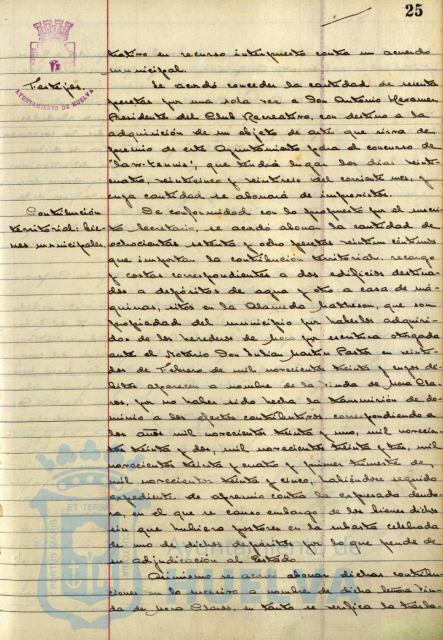 25
AYUNTAMIENTO DE HUELVA
trativo en recurso interpuesto contra un acuerdo
municipal.
Festejos.
Se acordó conceder la cantidad de
pesetas por una sola vez a Don Antonio
Presidente del Club Recreativo, con destino a la
adquisición de un objeto de arte que sirva de
premio de este Ayuntamiento para el concurso de
"lawn-tennis", que tendrá lugar los días veinti-
cuatro, veinticinco y veintiseis del corriente mes, y
cuya cantidad se abonará de imprevistos.
Contribución
territorial: bie-
nes municipales.
De conformidad con lo propuesto por el infrascri-
to Secretario, se acordó abonar la cantidad de
ochocientas setenta y ocho pesetas veintiun céntimos
que importan la contribución territorial, recargo
y costas correspondientes a dos edificios destina-
dos a depósitos de agua y otro a casa de má-
quinas, sitos en la Alameda Mathesson, que son
propiedad del municipio por haberlos adquiri-
do de los herederos de Mora por escritura otorgada
ante el Notario Don Julian Martin Pastor en veinti-
dos de Febrero de mil novecientos treinta y cuyos dé-
bitos aparecen a nombre de la Viuda de Mora Cla-
ros, por no haber sido hecha la transmisión de do-
minio a los efectos contributivos correspondiendo a
los años mil novecientos treinta y uno, mil novecien-
tos treinta y dos, mil novecientos treinta y tres, mil
novecientos treinta y cuatro y primer trimestre de
mil novecientos treinta y cinco, habiéndose seguido
expediente de apremio contra la expresada deudo-
ra, en el que se causó embargo de los bienes dichos
sin que hubiera postores en la subasta celebrada
de uno de dichos depósitos por lo que pende de
su adjudicación al Estado.
Asimismo se acordó abonar dichas contribu-
ciones en lo sucesivo a nombre de dicha señora Viu-
da de Mora Claros, en tanto se verifica la trasla-
PORTUS MARIS ET TERRAE
Ayuntamiento de
HUELVA